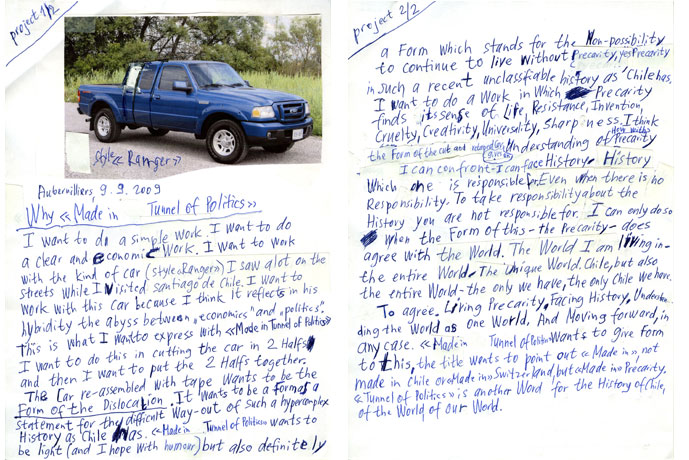 project 1/2
style « Ranger »
Aubervilliers, 9.9.2009
Why «Made in Tunnel of Politics»
I want to do a simple work. I want to do
a clear and economic work. I want to work
with the kind of car (style «Ranger») I saw a lot on the
streets while I visited santiago de Chile. I want to
work with this car because I think it reflects in his
hybridity the abyss between „economics" and „politics".
This is what I want to express with «Made in Tunnel of Politics»
I want to do this in cutting the car in 2 Halfs
and then I want to put the 2 Halfs together.
The Car re-assembled with tape wants to be the
Form of the Dislocation. It wants to be a form as a
statement for the difficult Way-out of such a hypercomplex
History as Chile has. «Made in Tunnel of Politics» wants to
be light (and I hope with humour) but also definitely
project 2/2
a Form which stands for the Non-possibility
to continue to live without Precarity, yes Precarity
in such a recent unclassfiable history as Chile has.
I want to do a Work in Which Precarity
finds its sense of Life, Resistance, Invention,
Cruelty, Creativity, Universality, Sharpness. I think
the Form of the cut and Understanding of Precarity
How with
I can confront - I can face History. History
Which one is responsible for. Even when there is no
Responsibility. To take responsibility about the
History you are not responsible for. I can only do so
when the Form of this - the Precarity - does
agree with the World. The World I am living in -
the entire World. The Unique World. Chile, but also
the entire World - the only we have, the only Chile we have.
To agree. Living Precarity, Facing History, Understan-
ding the World as one World, And Moving forward, in
any case. «Made in Tunnel of Politics» Wants to give Form
to this, the title wants to point out «Made in», not
made in Chile or «Made in» Switzerland, but «Made in» Precarity.
«Tunnel of Politics» is another Word for the History of Chile,
of the World of our World.